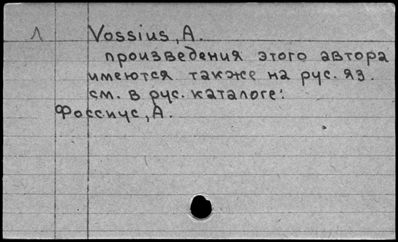 Л Vossius, A.
произведения этого автора
имеются также на рус. яз.
см. в рус. каталоге:
Фоссиус, А.